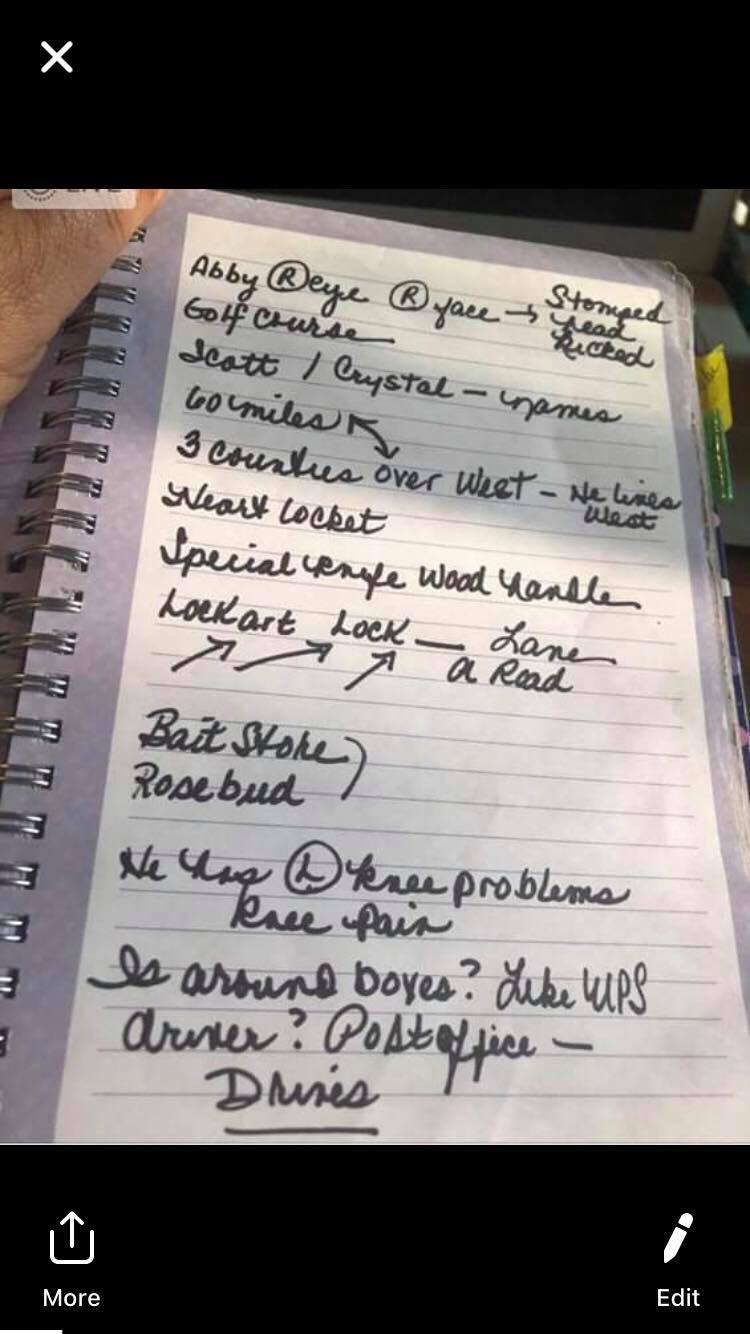 Abby Ⓡ eye Ⓡ face → Stomped
head
Kicked
Golf course
Scott / Crystal - names
60 miles
3 counties over West - He lives
West
Heart locket
Special knife wood handle
Lockart Lock — Lane
a Road
Bait Store
Rosebud
He has Ⓛ knee problems
knee pain
Is around boxes? Like UPS
driver? Post office -
Drives
More
Edit